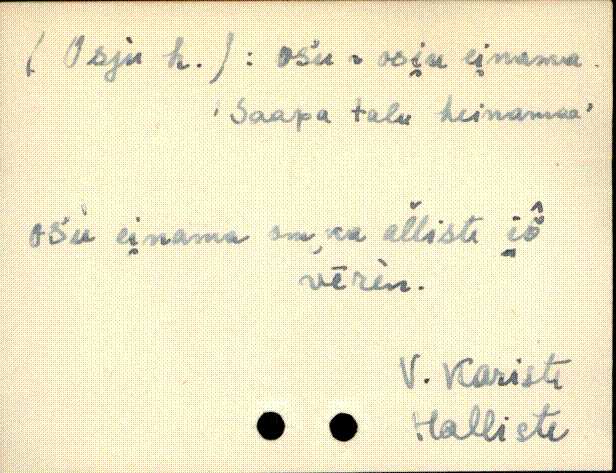 ( Osjù h. ) : ośu ~ osi̯u ei̯nama.
'Saapa talu heinamaa'
ośù ei̯nama om, ka al̆liste i̯ȭ
vērèn.
V. Kariste
Halliste